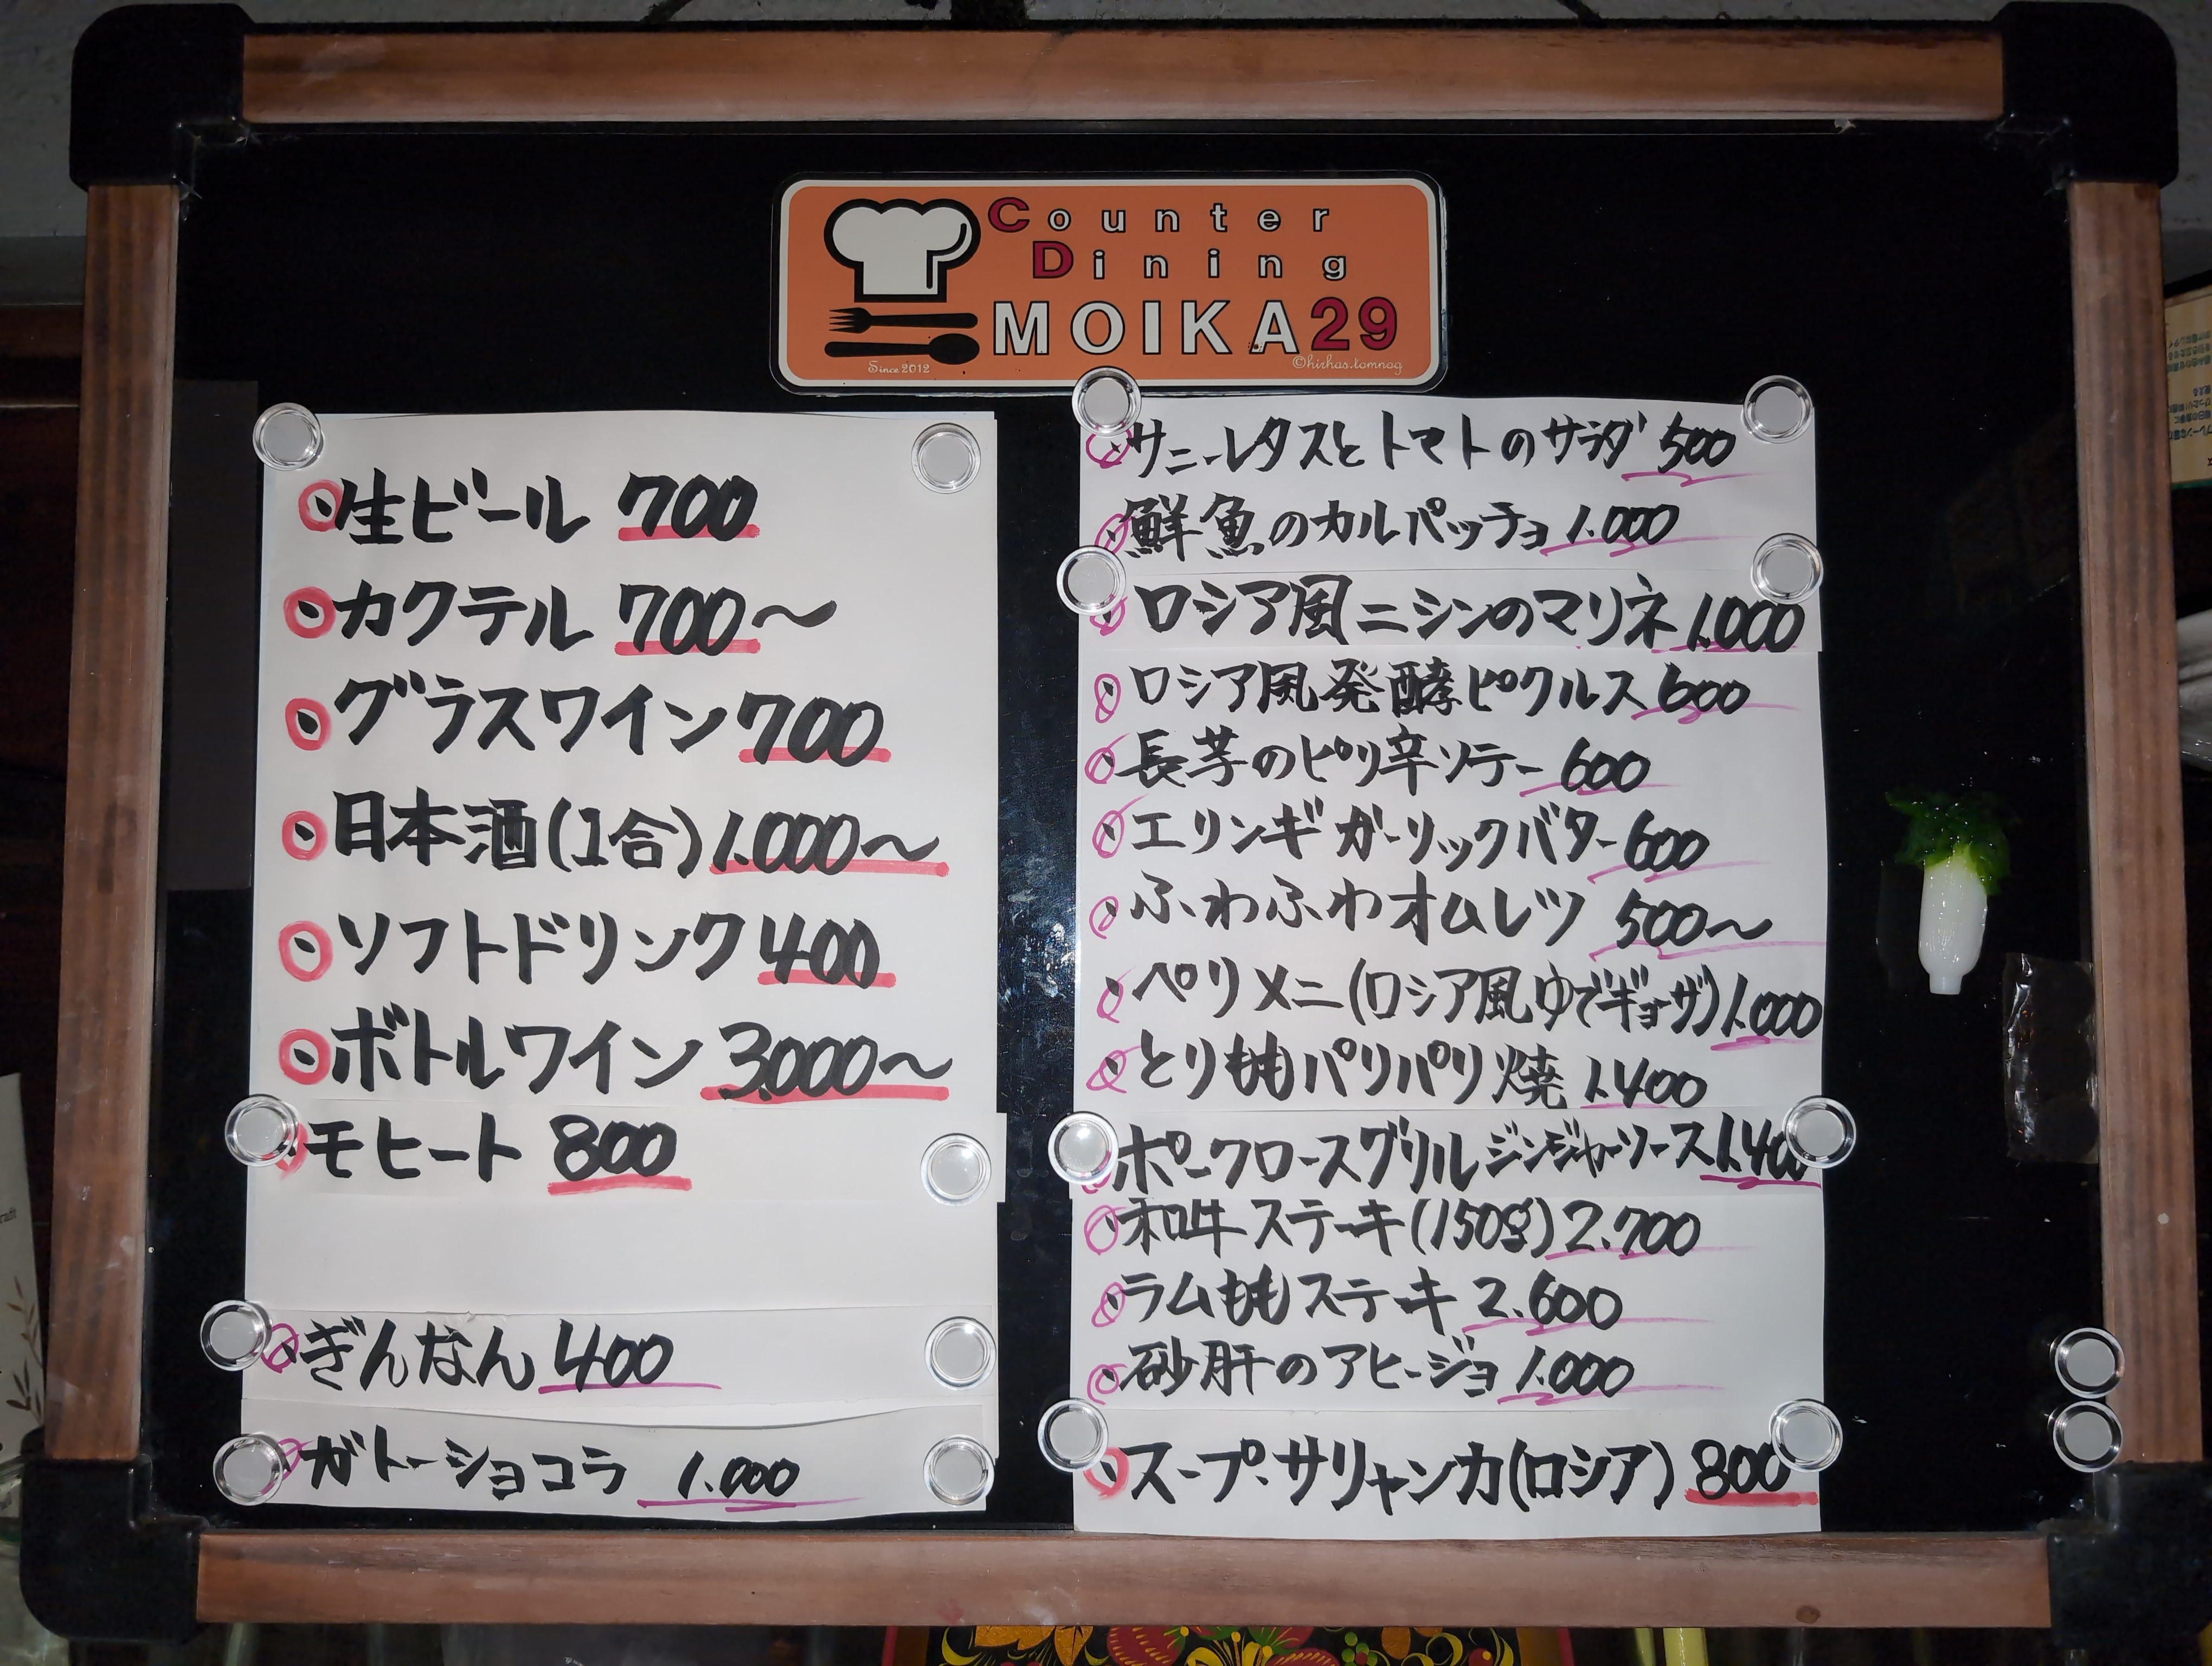 Counter
Dining
MOIKA29
Since 2012
©hirhas.tomnag
生ビール 700
カクテル 700〜
グラスワイン 700
日本酒(1合) 1.000〜
ソフトドリンク 400
ボトルワイン 3.000〜
モヒート 800
ぎんなん 400
ガトーショコラ 1.000
サニーレタスとトマトのサラダ 500
鮮魚のカルパッチョ 1.000
ロシア風ニシンのマリネ 1.000
ロシア風発酵ピクルス 600
長芋のピリ辛ソテー 600
エリンギガーリックバター 600
ふわふわオムレツ 500〜
ペリメニ(ロシア風ゆでギョーザ) 1.000
とりももパリパリ焼 1.400
ポークロースグリルジンジャーソース 1.400
和牛ステーキ(150g) 2.700
ラムももステーキ 2.600
砂肝のアヒージョ 1.000
スープ・サリャンカ(ロシア) 800